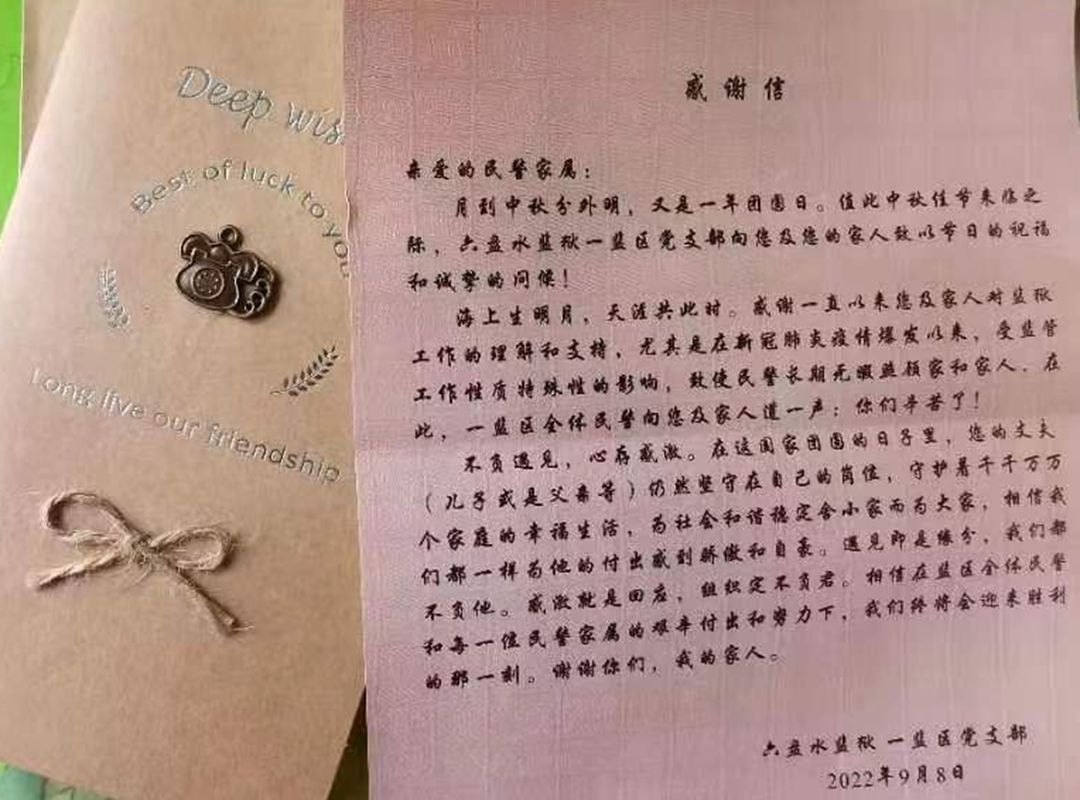 Deep wis
Best of luck to you
Long live our friendship
感谢信
亲爱的民警家属：
月到中秋分外明，又是一年团圆日。值此中秋佳节来临之
际，六盘水监狱一监区党支部向您及您的家人致以节日的祝福
和诚挚的问候！
海上生明月，天涯共此时。感谢一直以来您及家人对监狱
工作的理解和支持，尤其是在新冠肺炎疫情爆发以来，受监管
工作性质特殊性的影响，致使民警长期无暇照顾家和家人．在
此，一监区全体民警向您及家人道一声：你们辛苦了！
不负遇见，心存感激。在这国家团圆的日子里，您的丈夫
（儿子或是父亲等）仍然坚守在自己的岗位，守护着千千万万
个家庭的幸福生活，为社会和谐稳定舍小家而为大家，相信我
们都一样为他的付出感到骄傲和自豪。遇见即是缘分，我们都
不负他。感激就是回应，组织定不负君。相信在监区全体民警
和每一位民警家属的艰辛付出和努力下，我们终将会迎来胜利
的那一刻。谢谢你们，我的家人。
六盘水监狱一监区党支部
2022年9月8日